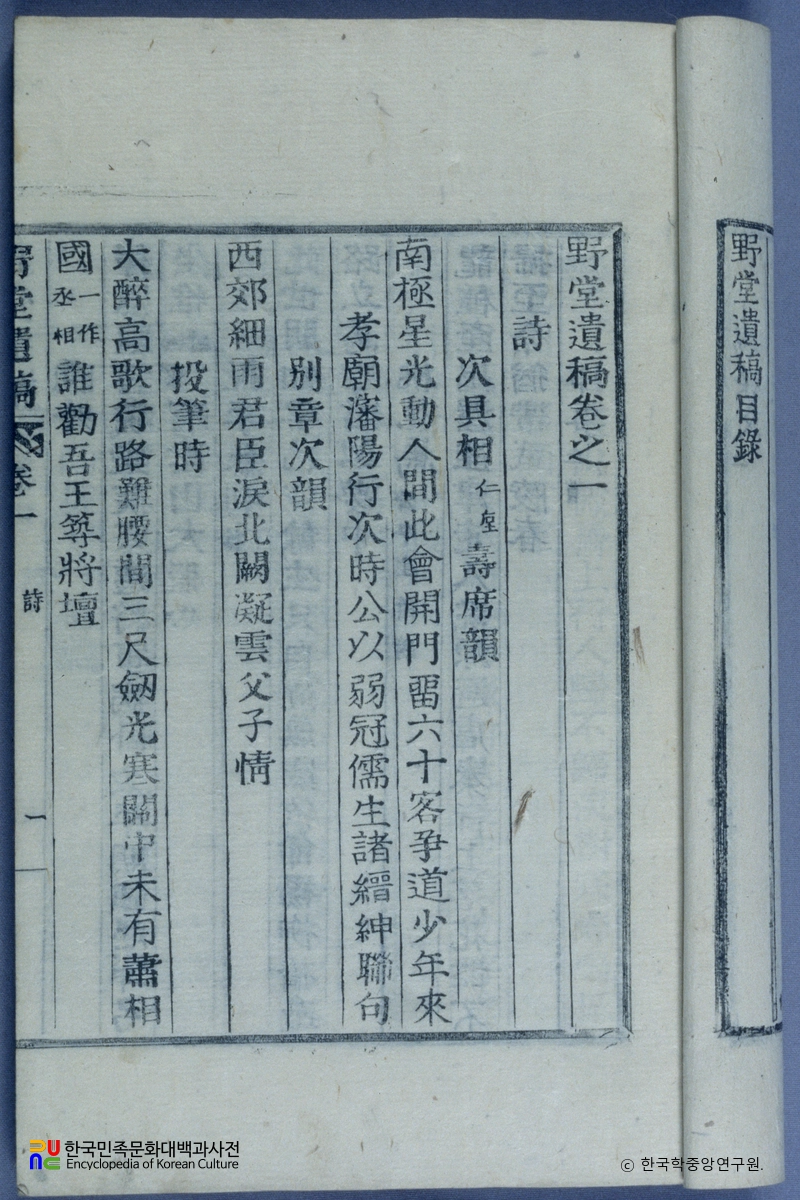 野堂遺稿目錄
野堂遺稿卷之一
詩
次具相仁垕壽席韻
南極星光動人間此會開門畱六十客爭道少年來
孝廟瀋陽行次時公以弱冠儒生諸縉紳聯句
別章次韻
西郊細雨君臣淚北闕凝雲父子情
投筆時
大醉高歌行路難腰間三尺劒光寒關中未有蕭相
國一作丞相誰勸吾王築將壇
野堂遺稿 卷一 詩 一
한국민족문화대백과사전
Encyclopedia of Korean Culture
© 한국학중앙연구원.